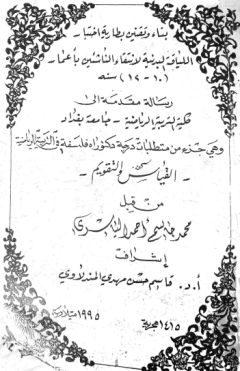 بناء وتقنين بطارية اختبار
اللياقة البدنية لانتقاء الناشئين بأعمار
(١٠-١٢) سنة
رسالة مقدمة الى
كلية التربية الرياضية - جامعة بغداد
وهي جزء من متطلبات درجة دكتوراه فلسفة في التربية الرياضية
- القياس والتقويم -
من قبل
محمد جاسم أحمد الياسري
إشراف
أ.د. قاسم حسن مهدي المندلاوي
١٤١٥ هجرية ١٩٩٥ ميلادية